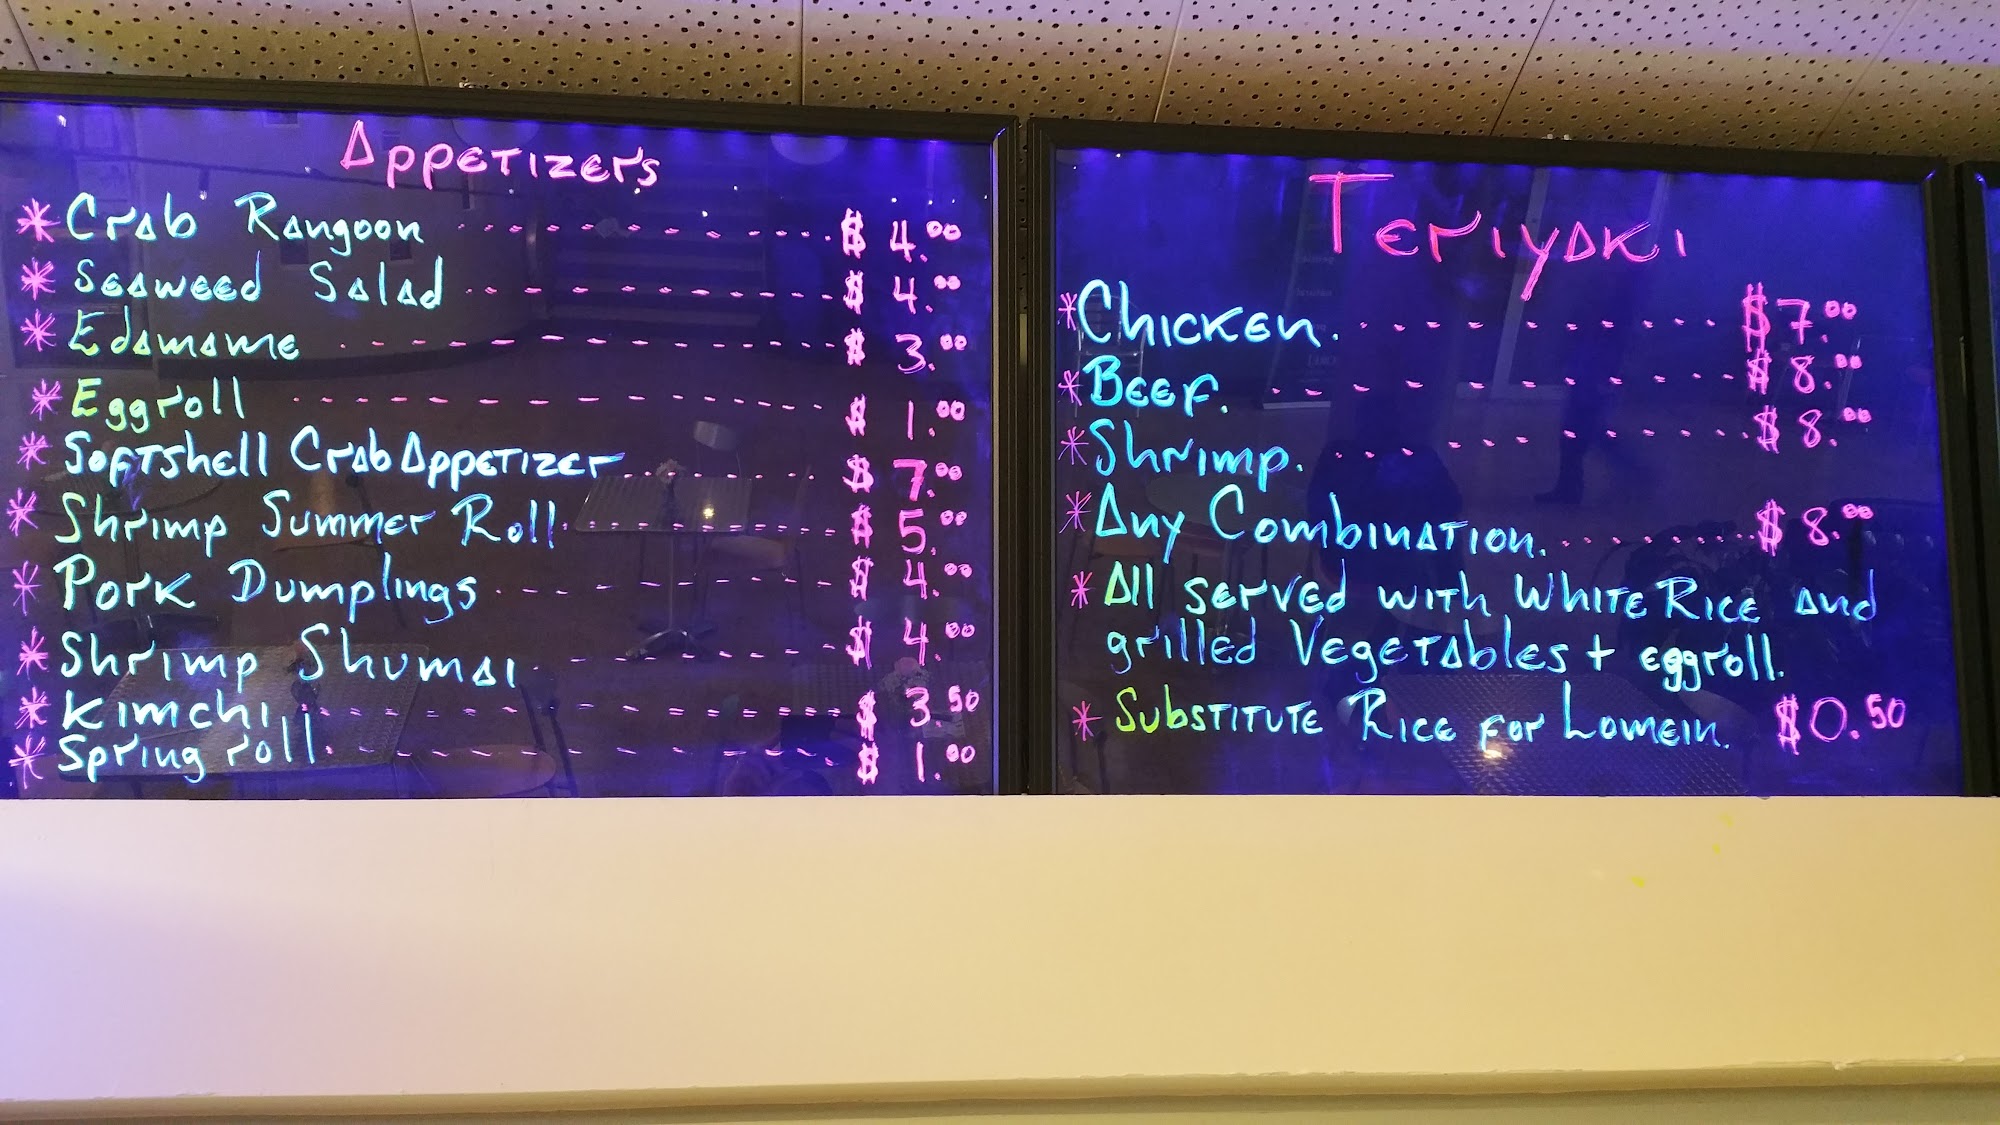 Appetizers
* Crab Rangoon $ 4.00
* Seaweed Salad $ 4.00
* Edamame $ 3.00
* Eggroll $ 1.00
* Softshell Crab Appetizer $ 7.00
* Shrimp Summer Roll $ 5.00
* Pork Dumplings $ 4.00
* Shrimp Shumai $ 4.00
* Kimchi $ 3.50
* Spring roll $ 1.00
Teriyaki
* Chicken. $ 7.00
* Beef. $ 8.00
* Shrimp. $ 8.00
* Any Combination. $ 8.00
* All served with White Rice and
grilled Vegetables + eggroll.
* Substitute Rice for Lomein. $0.50